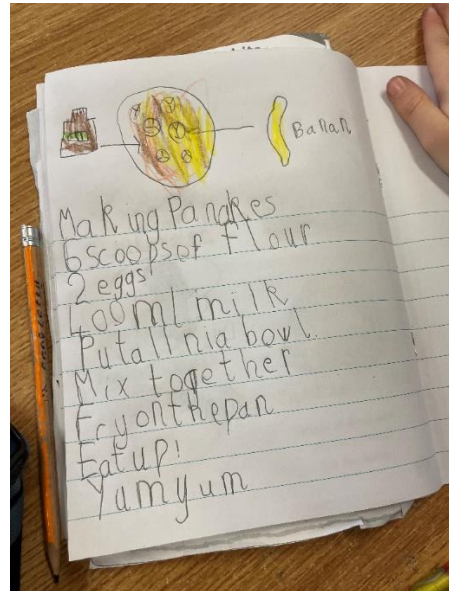 Banan
Making Pandkes
6 scoops of flour
2 eggs
400ml milk
Put all nia bowl
Mix together
Fry on the pan
Eat up!
Yum yum